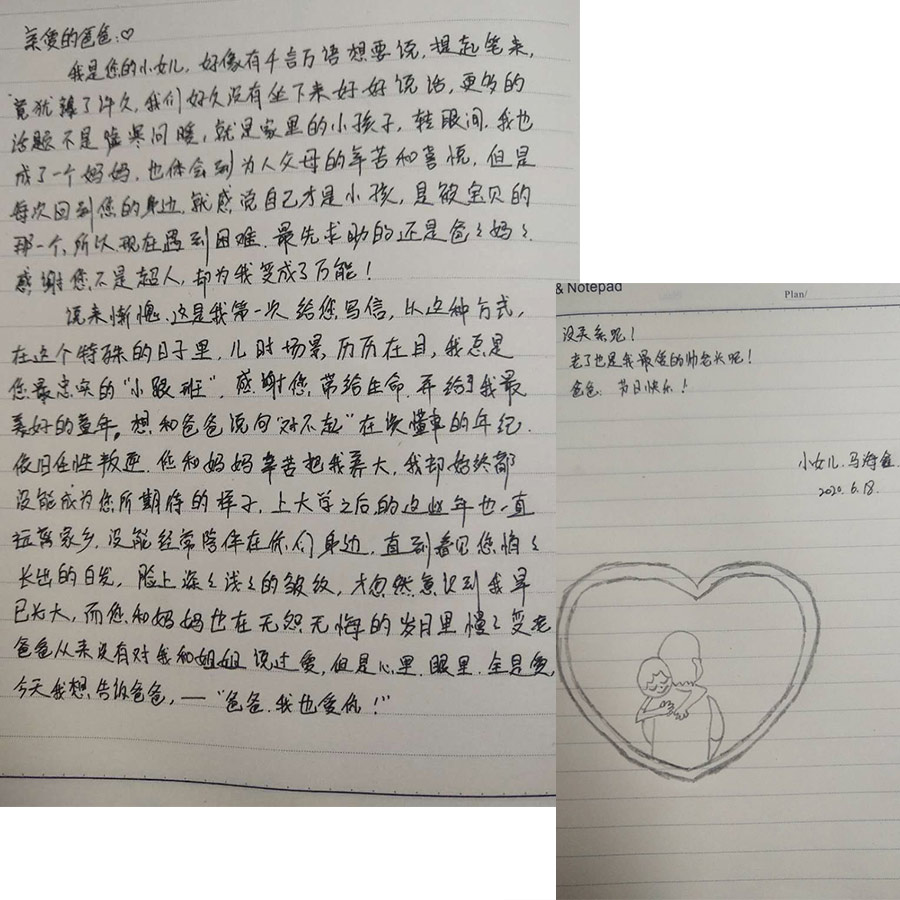 亲爱的爸爸:♡
我是您的小女儿，好像有千言万语想要说，提起笔来，
竟犹豫了许久，我们好久没有坐下来好好说话，更多的
话题不是嘘寒问暖，就是家里的小孩子，转眼间，我也
成了一个妈妈，也体会到为人父母的辛苦和喜悦，但是
每次回到您的身边，就感觉自己才是小孩，是被宝贝的
那一个，所以现在遇到困难，最先求助的还是爸々妈々，
感谢您不是超人，却为我变成了万能！
说来惭愧，这是我第一次给您写信，以这种方式，
在这个特殊的日子里，儿时场景，历历在目，我总是
您最忠实的“小跟班”，感谢您，带给生命，再给予我最
美好的童年。想和爸爸说句“对不起”在该懂事的年纪，
依旧任性叛逆，您和妈妈辛苦把我养大，我却始终都
没能成为您所期待的样子，上大学之后的这些年也一直
远离家乡，没能经常陪伴在你们身边，直到看见您悄々
长出的白发，脸上深々浅々的皱纹，才忽然意识到我早
已长大，而您和妈妈也在无怨无悔的岁月里慢々变老
爸爸从来没有对我和姐姐说过爱，但是心里，眼里，全是爱，
今天我想告诉爸爸，—“爸爸，我也爱你！”
& Notepad
Plan/
没关系呢！
老了也是我最爱的帅爸长呢！
爸爸，节日快乐！
小女儿：马海鱼
2020.6.18.